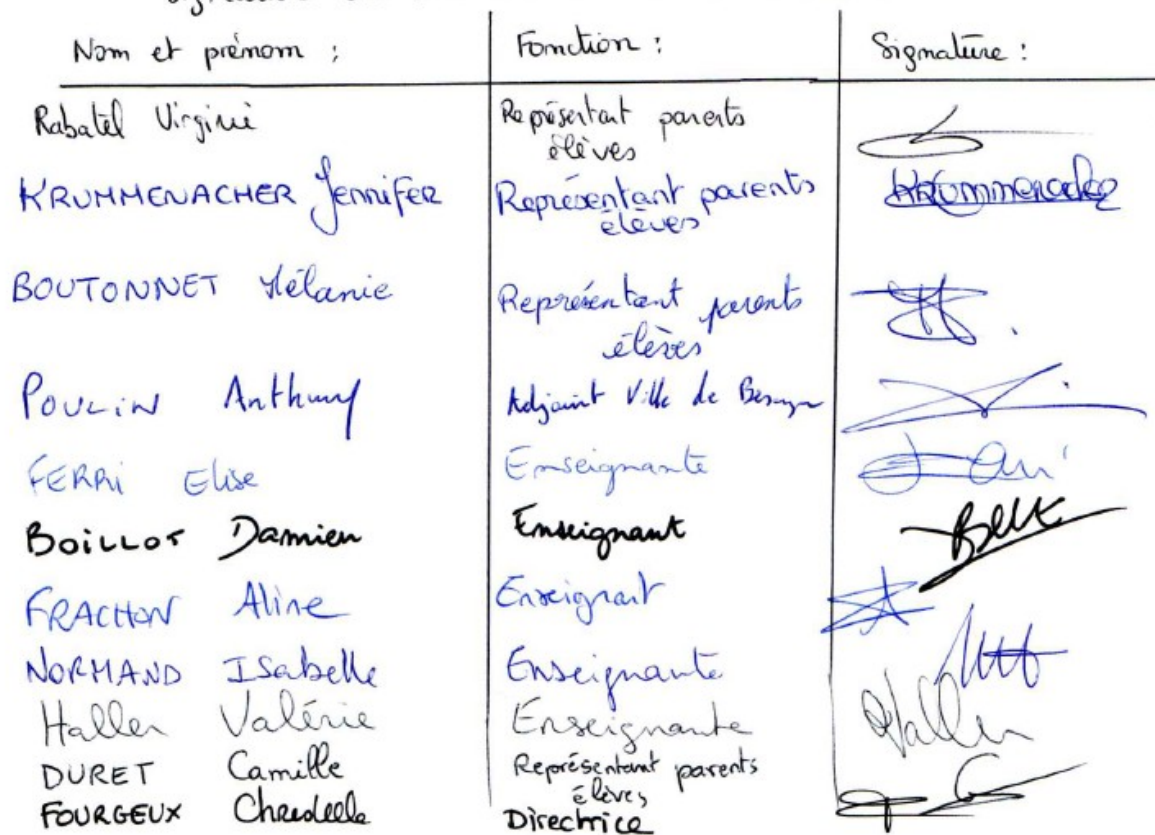 Nom et prénom : Fonction : Signature :
Rabatel Virginie Représentant parents élèves
KRUMMENACHER Jennifer Représentant parents élèves Krummenacher
BOUTONNET Mélanie Représentant parents élèves
POULIN Anthony Adjoint Ville de Besançon
FERRI Elise Enseignante
BOILLOT Damien Enseignant
FRACHON Aline Enseignant
NORMAND Isabelle Enseignante
Haller Valérie Enseignante Haller
DURET Camille Représentant parents élèves
FOURGEUX Directrice